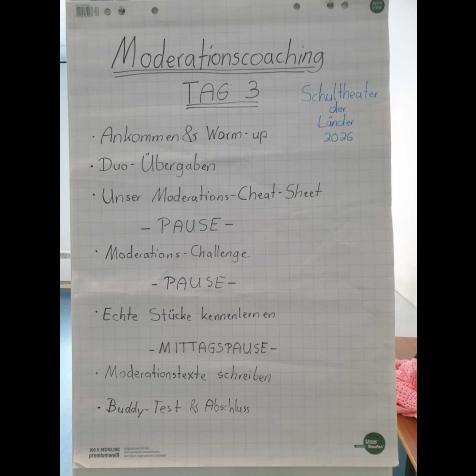 Moderationscoaching
TAG 3
Schultheater
der
Länder
2026
• Ankommen & Warm-up
• Duo-Übergaben
• Unser Moderations-Cheat-Sheet
- PAUSE -
• Moderations-Challenge
- PAUSE -
• Echte Stücke kennenlernen
- MITTAGSPAUSE -
• Moderationstexte schreiben
• Buddy-Test & Abschluss
100% RECYCLING
premiumweiß